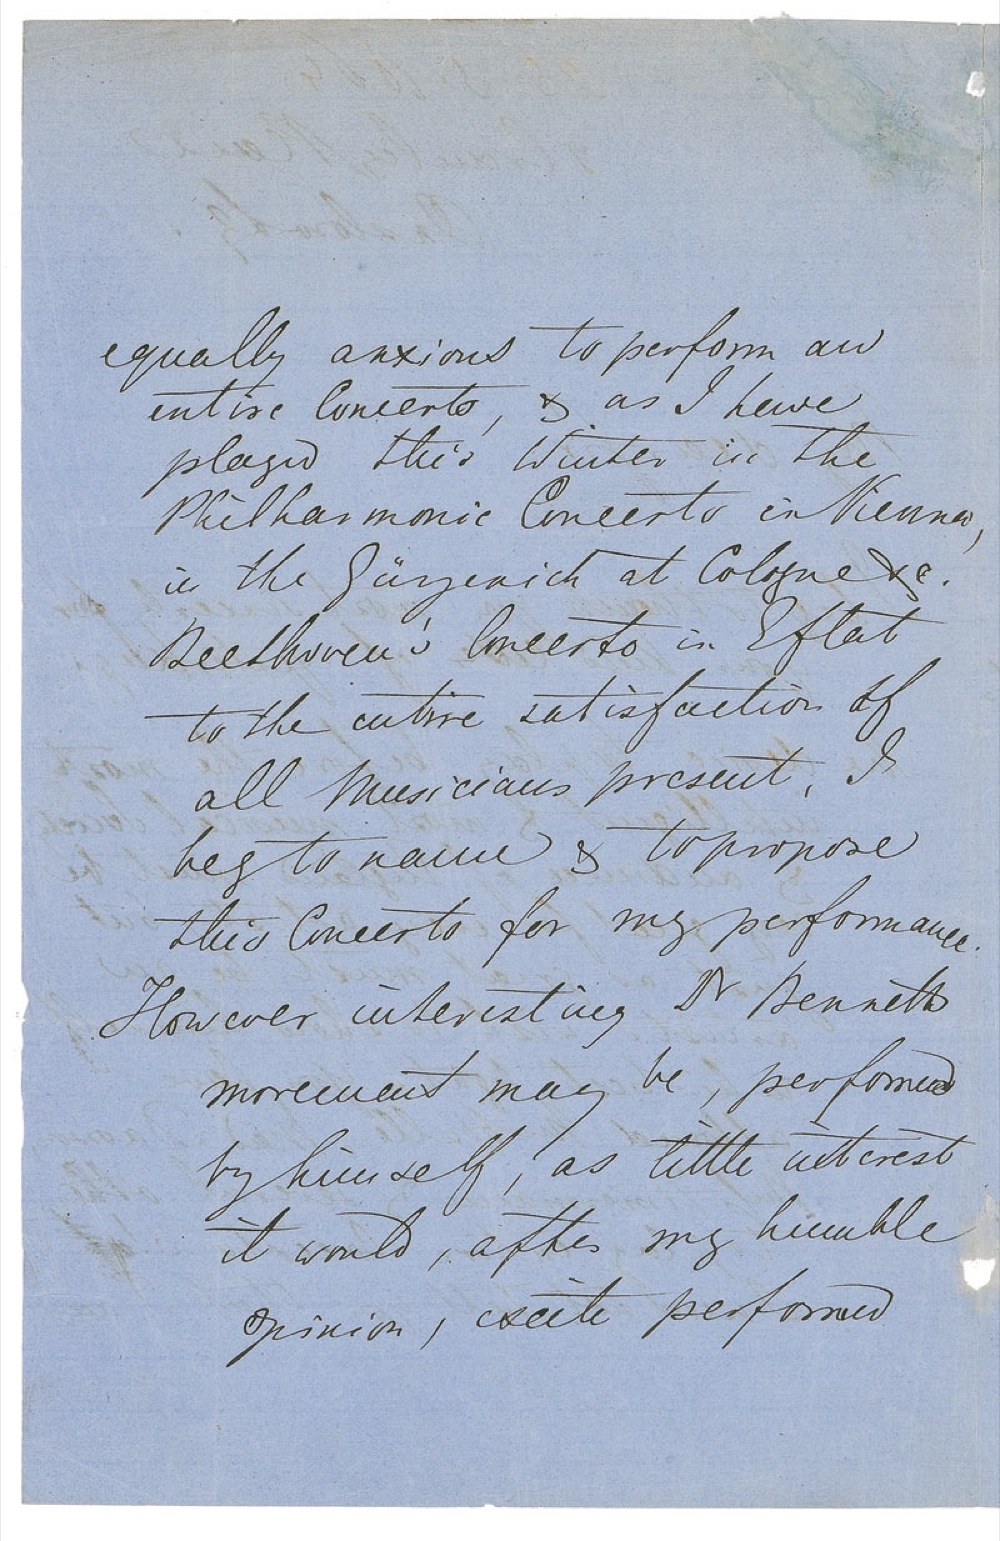 equally anxious to perform an
entire Concerto, & as I have
played this Winter in the
Philharmonic Concerts in Vienna,
in the Gürzenich at Cologne &c.
Beethoven's Concerto in E flat
to the entire satisfaction of
all Musicians present, I
beg to name & to propose
this Concerto for my performance.
However interesting Dr Bennetts
movement may be, performed
by himself, as little interest
it would, after my humble
opinion, excite performed